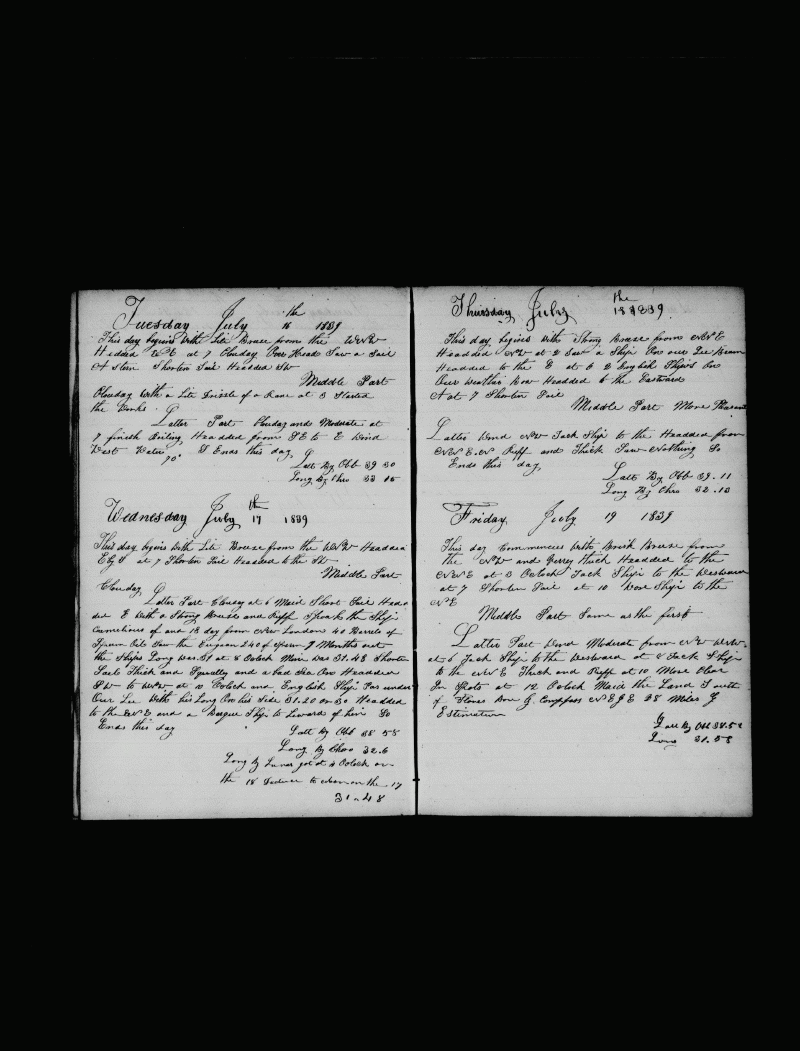 Tuesday July 16 the 1839
This day begins with Lite Breeze from the WNW
Hedded at 7 Clouday One Head Saw a Sail
A Stern Shorten Sail Headded SW
Middle Part
Clouday with a Lite Drizzle of a Rane at 3 Started
the Works
Latter Part Clouday and Moderate at
7 finish Boiling Headded from SE to E Wind
West Water 70° So Ends this day
Latt By Obb 39 30
Long By Chro 33 15
Wednesday July 17 the 1839
This day begins with Lite Breeze from the WNW Headded
E by S at 7 Shorten Sail Headded to the SW
Middle Part
Clouday
Latter Part Clouday at 6 Maid Short Sail Head
ded E with a Strong Breeze and Ruff Spoak the Ship
Cornelious of and 18 day from New London 40 Barrels of
Sperm Oil Saw the 240 of Sperm 9 Months out
the Ships Long was at 8 Oclock Mine was 31.48 Shorten
Sails Thick and Squally and a bad Sea On Headded
SW to WNW at 10 Oclock and English Ship Pas under
Our Lee With his Long On his Side 31.20 Headded
to the ENE and a Barque Ship to Lewards of him So
Ends this day
Latt By Obb 38 58
Long By Chro 32.6
Long By Lunar got at 4 Oclock on
the 18 to on the 17
31 " 48
Thursday July the 18 1839
This day begins With Strong Breeze from NNE
Headded NW at 2 Saw a Ship On our Lee Beam
Headded to the E at 6 2 English Ships On
Our Weather Bow Headded to the Eastward
at 7 Shorten Sail
Middle Part More Pleasant
Latter Wind NW Tack Ship to the Headded from
ENE Ruff and Thick Saw Nothing So
Ends this day
Latt By Obb 39.11
Long By Chro 32.13
Friday July 19 1839
This day Commences With Brisk Breeze from
the NW and Verry Thick Headded to the
at 3 Oclock Tack Ship to the Westward
at 7 Shorten Sail at 10 Wore Ship to the
NE
Middle Part Same as the first
Latter Part Wind Moderate from NW
at 6 Tack Ship to the Westward at 8 Tack Ship
to the NNE Thick and Ruff at 10 More Clear
In Spots at 12 Oclock Maid the Land South
of Flores Bore By Compass 28 Miles By
Estimation
Latt By Obb 38.52
Long 31.58